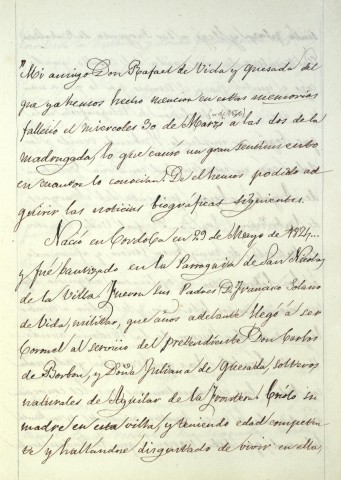 "Mi amigo Don Rafael de Vida y Quesada del
que ya hemos hecho mencion en estas memorias
falleció el miercoles 30 de Marzo a las dos de la
madrugada, lo que causó un gran sentimiento
en cuantos lo conocian. De el hemos podido ad-
quirir las noticias biográficas siguientes.
Nació en Cordoba en 29 de Mayo de 1824...
y fué bautizado en la Parroquia de San Nicolas
de la Villa. Fueron sus Padres D. Francisco Solano
de Vida, militar, que años adelante llegó a ser
Coronel al servicio del pretendiente Don Carlos
de Borbon, y Doña Juliana de Quesada, solteros
naturales de Aguilar de la Frontera. Criólo su
madre en esta villa, y teniendo edad competen-
te y hallandose disgustado de vivir en ella,